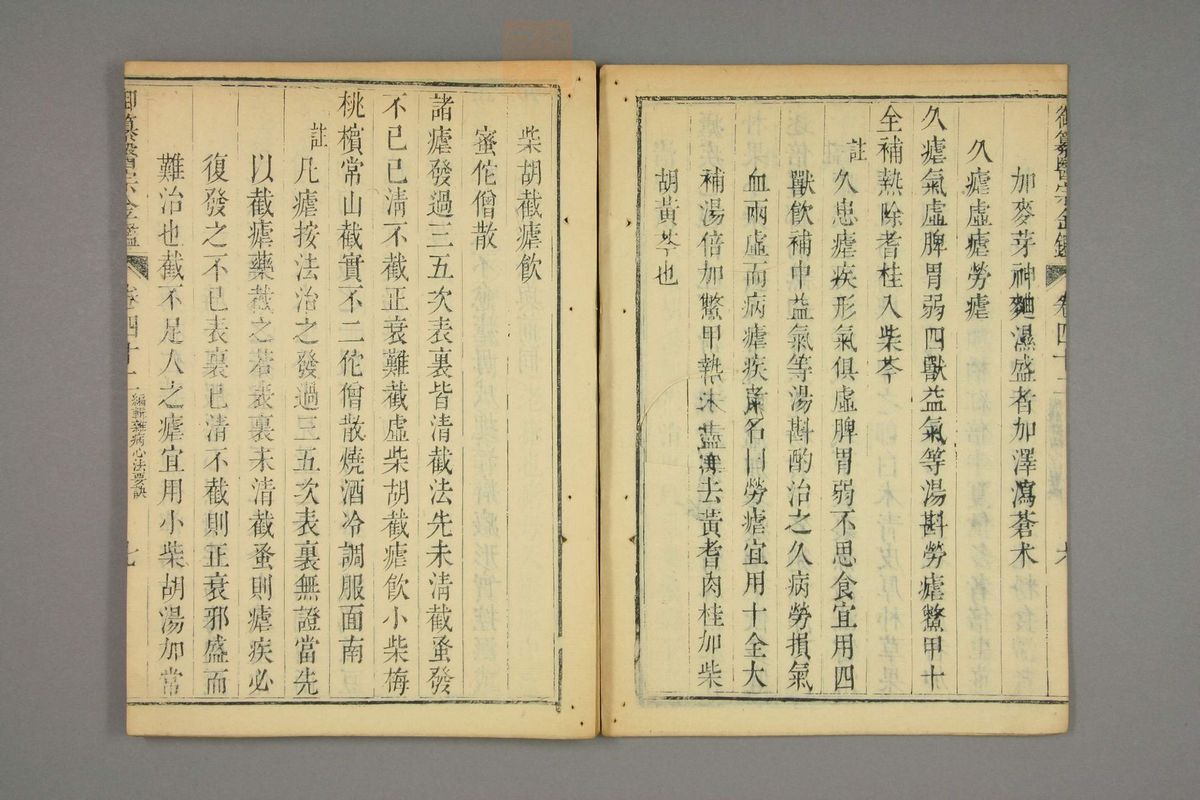 御纂醫宗金鑑
卷四十二
六
加麥芽神麯濕盛者加澤瀉蒼术
久瘧虛瘧勞瘧
久瘧氣虛脾胃弱四獸益氣等湯斟勞瘧鱉甲十
全補熱除耆桂入柴芩
註
久患瘧疾形氣俱虛脾胃弱不思食宜用四
獸飲補中益氣等湯斟酌治之久病勞損氣
血兩虛而病瘧疾者名曰勞瘧宜用十全大
補湯倍加鱉甲熱未盡去黃耆肉桂加柴
胡黃芩也
柴胡截瘧飲
蜜佗僧散
諸瘧發過三五次表裏皆清截法先未清截蚤發
不已已清不截正衰難截虛柴胡截瘧飲小柴梅
桃檳常山截實不二佗僧散燒酒冷調服面南
註
凡瘧按法治之發過三五次表裏無證當先
以截瘧藥截之若表裏未清截蚤則瘧疾必
復發之不已表裏已清不截則正衰邪盛而
難治也截不足人之瘧宜用小柴胡湯加常
御纂醫宗金鑑
卷四十二
編輯雜病心法要訣
七